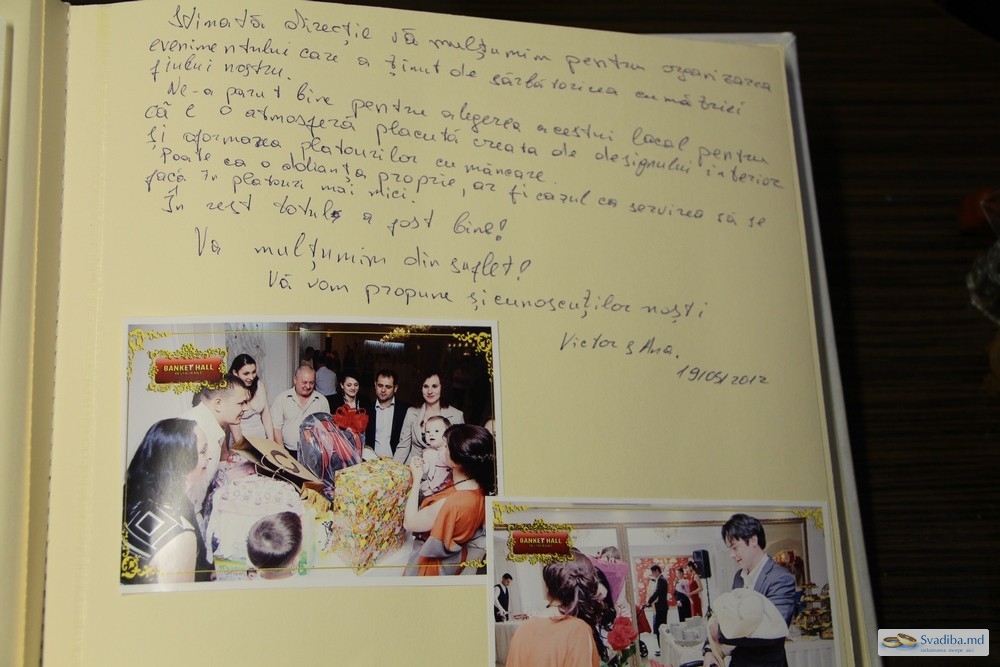 Stimată direcție vă mulțumim pentru organizarea
evenimentului care a ținut de sărbătorirea cumătriei
fiului nostru.
Ne-a parut bine pentru alegerea acestui local pentru
că e o atmosferă placută creata de designului interior
și aformarea platourilor cu mâncare.
Poate ca o dolianța proprie, ar fi cazul ca servirea să se
facă în platouri mai mici.
În rest totul a fost bine!
Va mulțumim din suflet!
Vă vom propune și cunoscuților noști
Victor și Ana.
19/05/2012
BANKET HALL
RESTAURANT
BANKET HALL
RESTAURANT
Svadiba.md